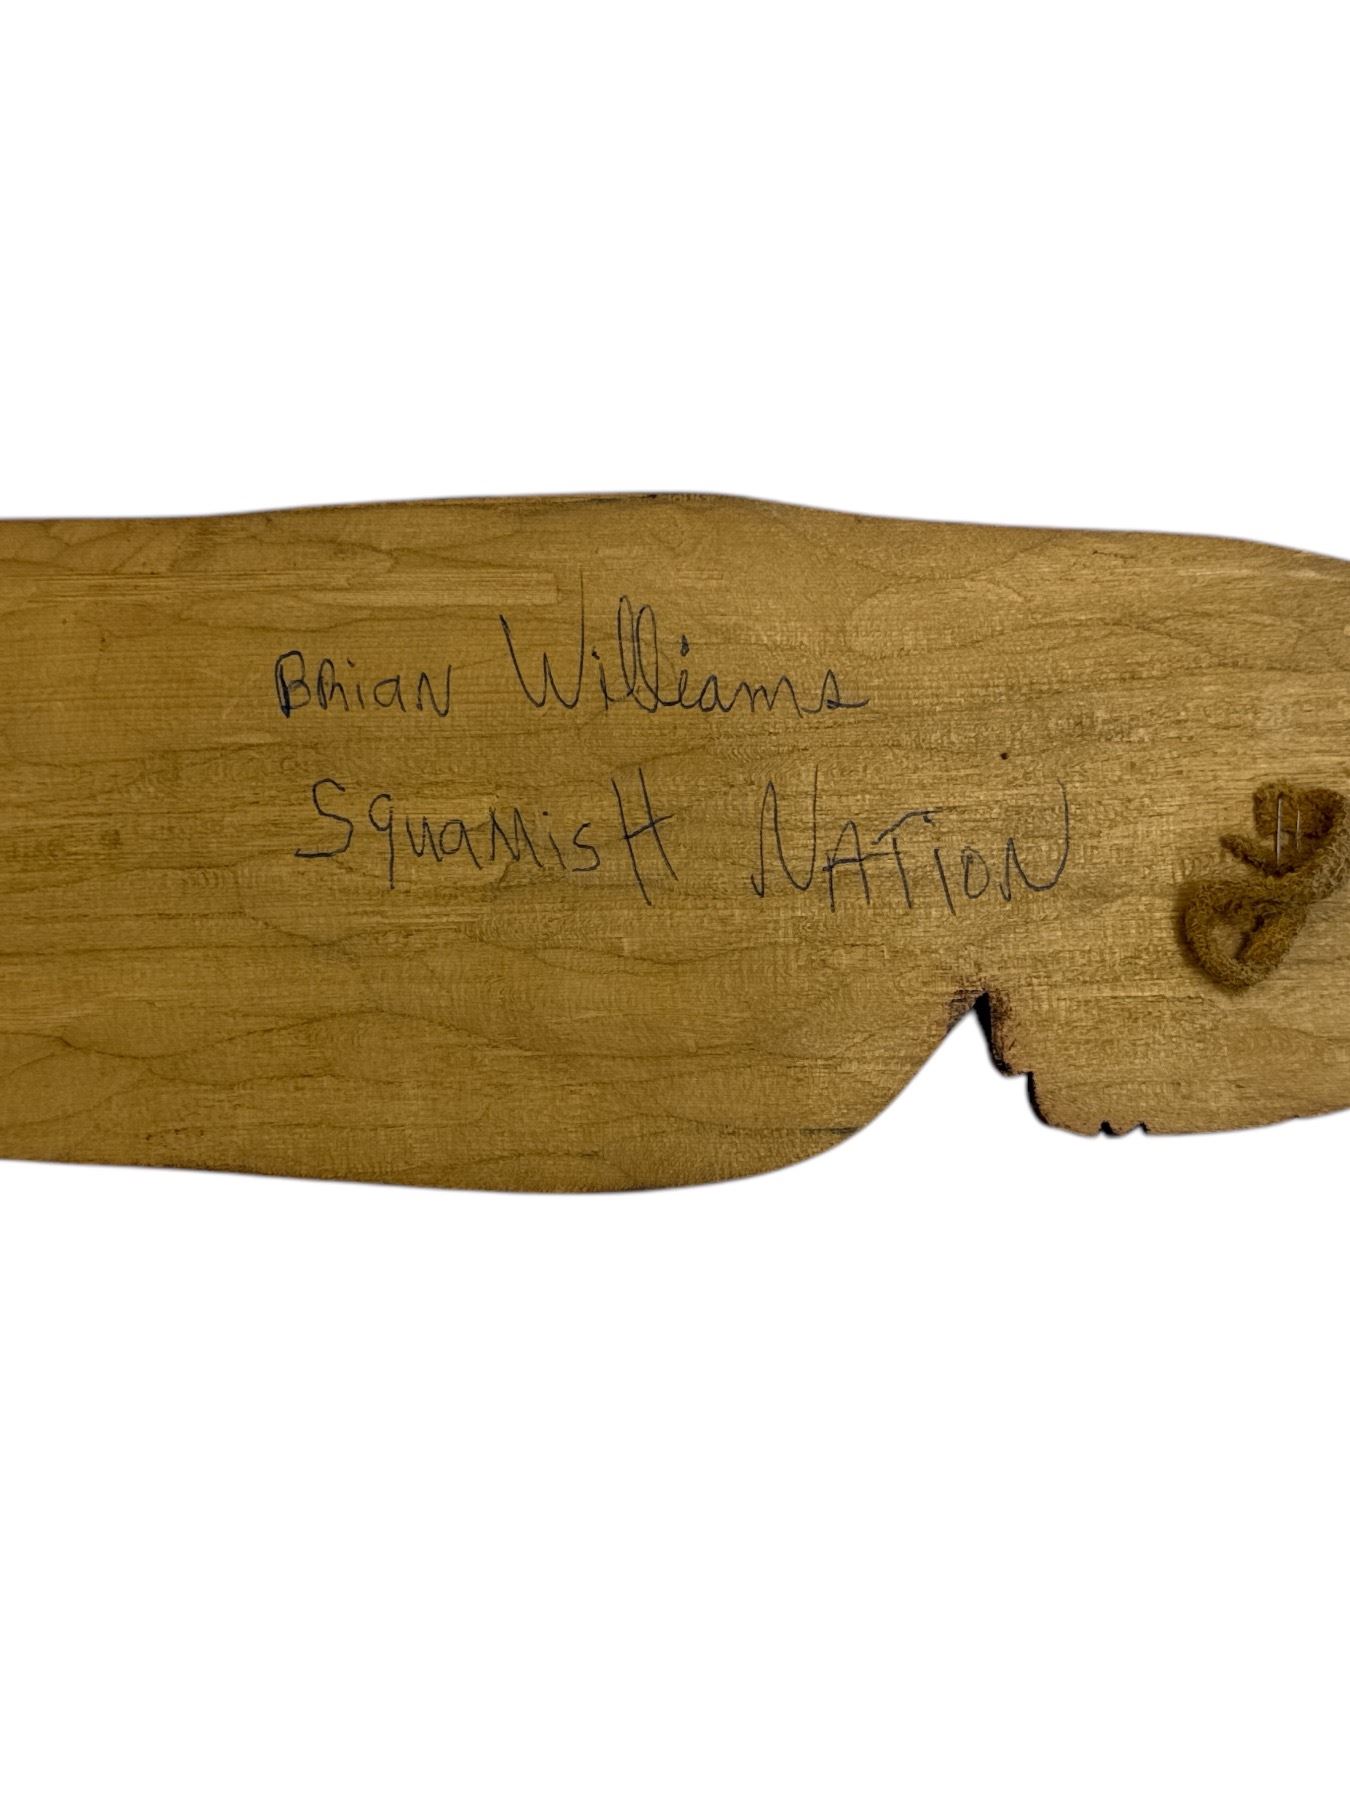 Brian Williams
Squamish Nation